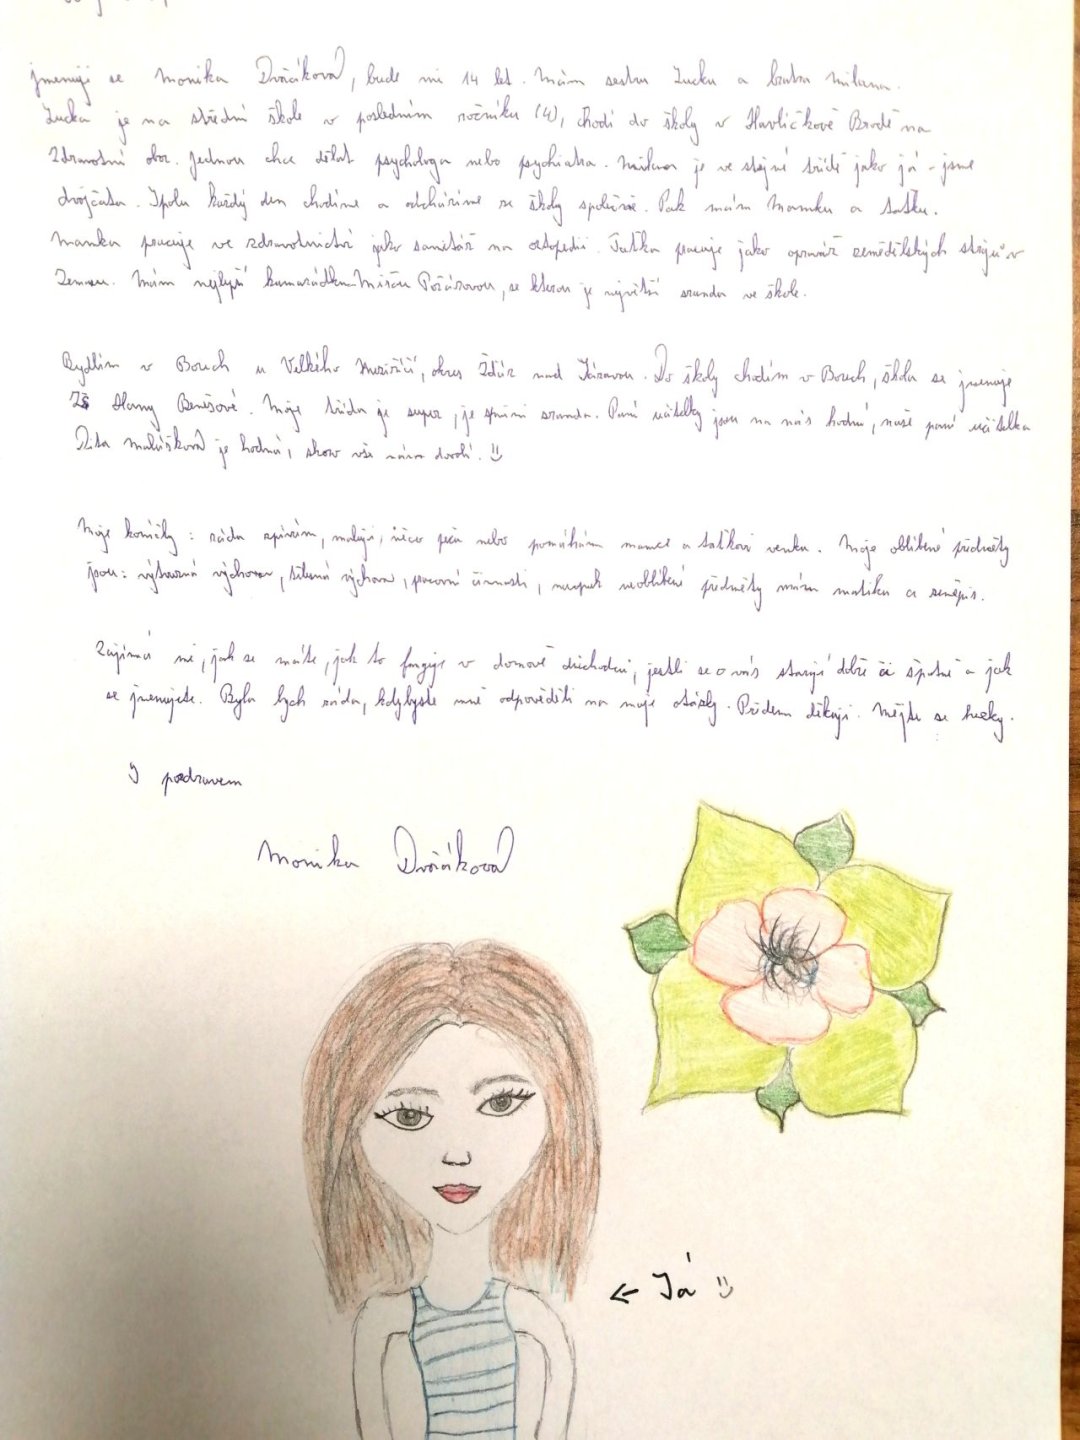 jmenuji se Monika Dvořáková, bude mi 14 let. Mám sestru Lucku a bratra Milana.
Lucka je na střední škole v posledním ročníku (4), chodí do školy v Havlíčkově Brodě na
Zdravotní obor. Jednou chce dělat psychologa nebo psychiatra. Milan je ve stejné třídě jako já - jsme
dvojčata. Spolu každý den chodíme a odcházíme ze školy společně. Pak mám mamku a taťku.
Mamka pracuje ve zdravotnictví jako sanitář na ortopedii. Taťka pracuje jako opravář zemědělských strojů v
Zemasu. Mám nejlepší kamarádku Míšu Požárovou, se kterou je největší sranda ve škole.
Bydlím v Borech u Velkého Meziříčí, okres Žďár nad Sázavou. Do školy chodím v Borech, škola se jmenuje
ZŠ Hany Benešové. Moje třída je super, je s námi sranda. Paní učitelky jsou na nás hodné, naše paní učitelka
Dita Malušková je hodná, skoro vše nám dovolí. :)
Moje koníčky: ráda zpívám, maluji, něco peču nebo pomáhám mamce a taťkovi venku. Moje oblíbené předměty
jsou: výtvarná výchova, tělesná výchova, pracovní činnosti, naopak neoblíbené předměty mám matiku a zeměpis.
Zajímá mě, jak se máte, jak to funguje v domově důchodců, jestli se o vás starají dobře či špatně a jak
se jmenujete. Byla bych ráda, kdybyste mně odpověděli na moje otázky. Předem děkuji. Mějte se hezky.
S pozdravem
Monika Dvořáková
← Já :)